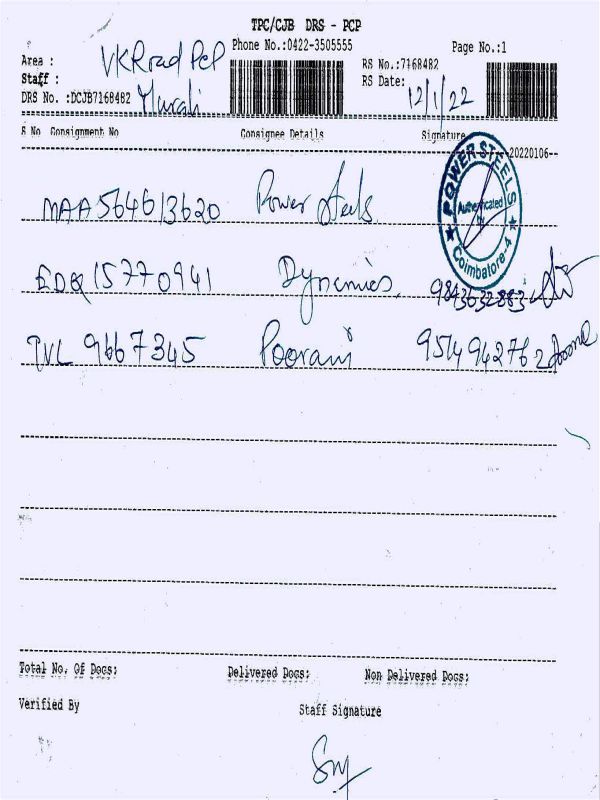 TPC/CJB DRS - PCP
Phone No.:0422-3505555
Page No.:1
Area : VKRoad PCP
Staff : Murali
RS No.:7168482
RS Date: 12/1/22
DRS No. :DCJB7168482
S No Consignment No Consignee Details Signature
20220106
MAA 564613620 Power Steels
POWER STEELS
Authenticated
by
Coimbatore-4
EDQ 15770941 Dynamics. 9843632883
TVL 9667345 Poorani 9514942762
Total No. Of Docs: Delivered Docs: Non Delivered Docs:
Verified By Staff Signature